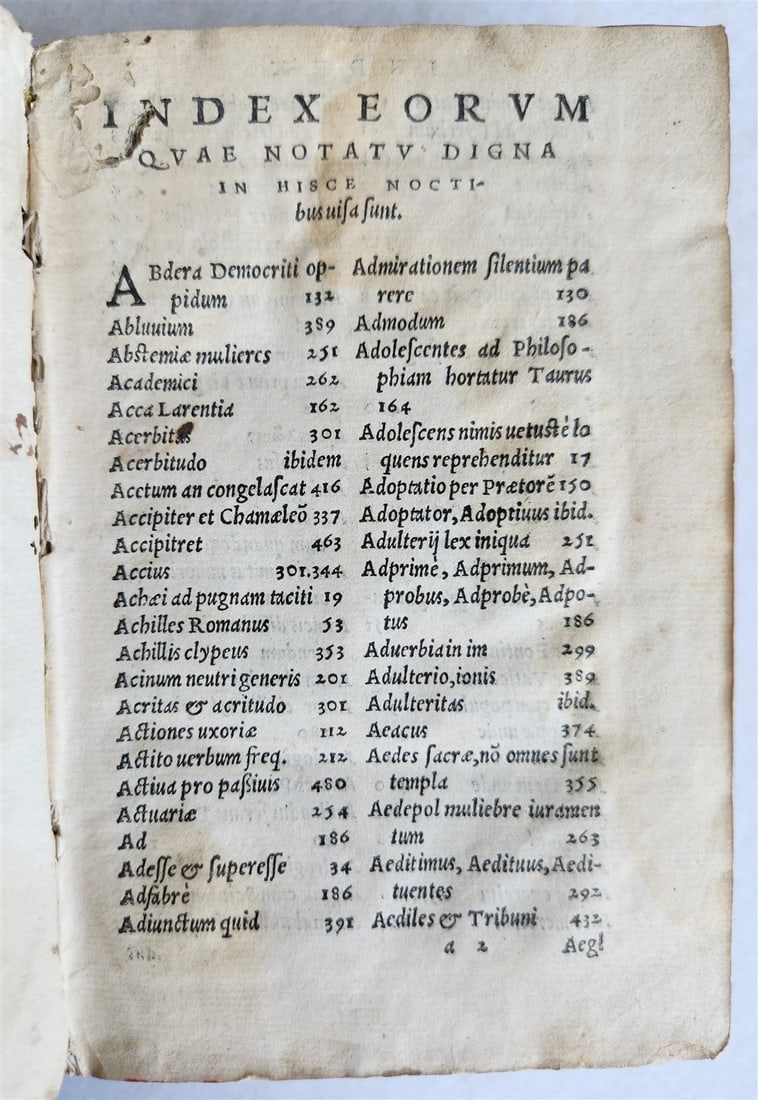 INDEX EORVM
QVAE NOTATV DIGNA
IN HISCE NOCTI-
bus uiſa ſunt.
ABdera Democriti op-
pidum 132
Abluuium 389
Abſtemiæ mulieres 251
Academici 262
Acca Larentia 162
Acerbitas 301
Acerbitudo ibidem
Acetum an congelaſcat 416
Accipiter et Chamæleõ 337
Accipitret 463
Accius 301.344
Achæi ad pugnam taciti 19
Achilles Romanus 53
Achillis clypeus 353
Acinum neutri generis 201
Acritas & acritudo 301
Actiones uxoriæ 112
Actito uerbum freq. 212
Actiua pro paſsiuis 480
Actuariæ 254
Ad 186
Adeſſe & ſupereſſe 34
Adfabrè 186
Adiunctum quid 391
Admirationem ſilentium pa
rere 130
Admodum 186
Adoleſcentes ad Philoſo-
phiam hortatur Taurus
164
Adoleſcens nimis uetuſtè lo
quens reprehenditur 17
Adoptatio per Prætorẽ 150
Adoptator, Adoptiuus ibid.
Adulterij lex iniqua 251
Adprimè, Adprimum, Ad-
probus, Adprobè, Adpo-
tus 186
Aduerbia in im 299
Adulterio, ionis 389
Adulteritas ibid.
Aeacus 374
Aedes ſacræ, nõ omnes ſunt
templa 355
Aedepol muliebre iuramen
tum 263
Aeditimus, Aedituus, Aedi-
tuentes 292
Aediles & Tribuni 432
a 2 Aegl